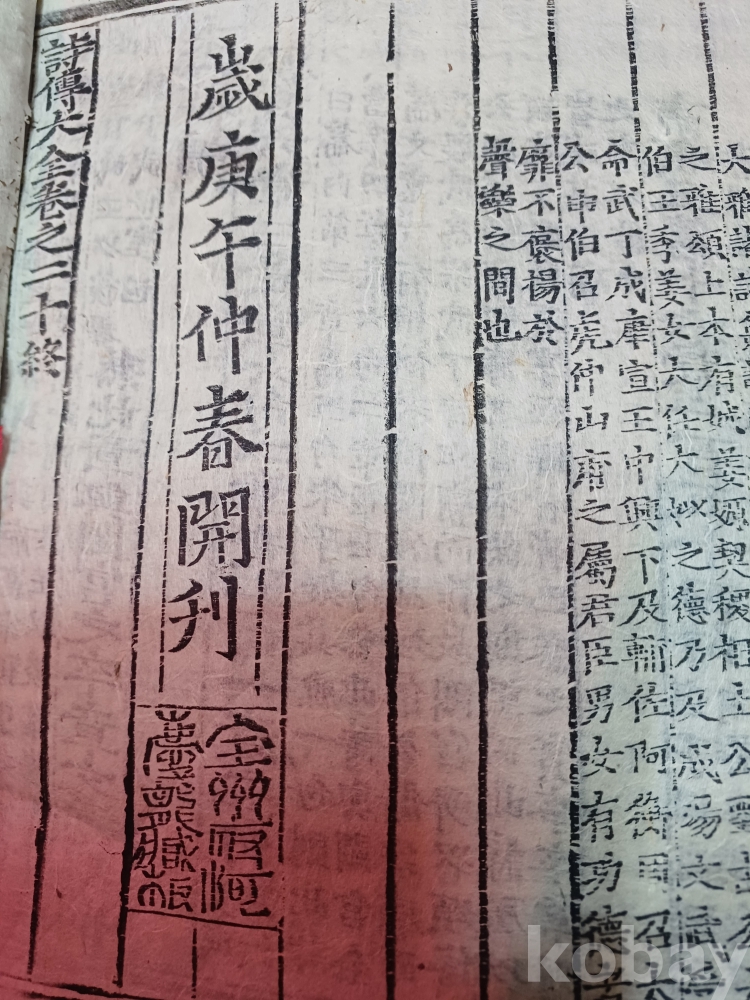 大雅諸詩
之雅頌上本有娀姜嫄契稷相土公劉古公
伯王季姜女大任大姒之德乃及成湯文武
命武丁成康宣王中興下及輔佐阿衡周召太
公申伯召虎仲山甫之屬君臣男女有功德者
靡不褒揚於
聲樂之間也
歲庚午仲春開刊
全州府河
慶龍藏板
詩傳大全卷之二十終
kobay